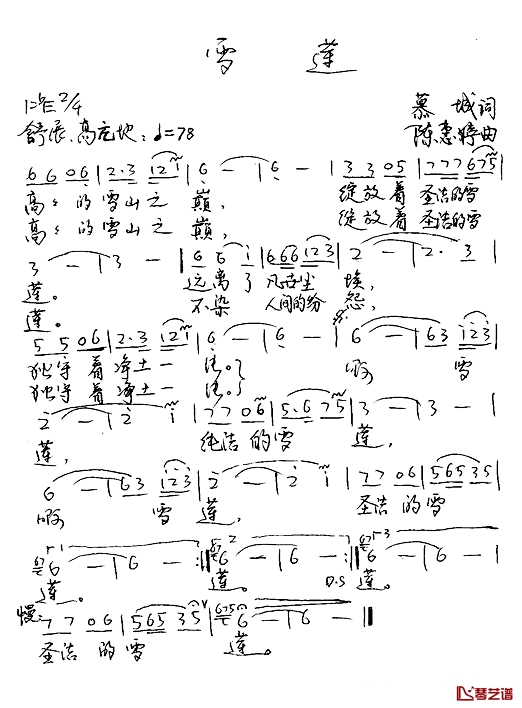 雪 莲
1=♭E 2/4
慕城词
舒展、高亢地 ♩=78
陈惠婷曲
6 6 0 6 | 2·3 1 2 1 | 6 - | 6 - | 3 3 0 5 | 7 7 7 6 7 5 |
高高的雪山之巅, 绽放着圣洁的雪
高高的雪山之巅, 绽放着圣洁的雪
3 - | 3 - | 6 6 i | 6 6 6 1 2 3 | 2 - | 2· 3 |
莲。 远离了凡世尘埃,
莲。 不染人间的纷怨,
5 5 0 6 | 2·3 1 2 1 | 6 - | 6 - | 6 - | 6 3 1 2 3 |
独守着净土一 啊 雪
独守着净土一
2 - | 2 i | 7 7 0 6 | 5·6 7 5 | 3 - | 3 - |
莲, 纯洁的雪莲,
6 - | 6 3 1 2 3 | 2 - | 2 i | 7 7 0 6 | 5 6 5 3 5 |
啊 雪莲, 圣洁的雪
1 2 3
6 - | 6 - :‖ 6 - | 6 - :‖ 6 - | 6 - |
莲。 莲。 D.S 莲。
慢 7 7 0 6 | 5 6 5 3 5 | 6 7 5 6 - | 6 - ‖
圣洁的雪莲。
飞琴艺谱